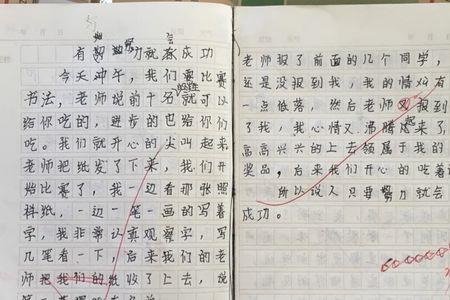 有努力就会成功
今天冲午,我们要比赛
书法,老师说前十名就可以
给你吃的,进步的也给你们
吃。我们就开心的尖叫起来
老师把纸发了下来,我们开
始比赛了,我一边看那张照
样纸,一边一笔一画的写着
字,我非常认真观察字,写
几笔看一下,后来我们的老
师把我们的纸收了上去,说
老师报了前面的几个同学,
还是没报到我,我的情况有
一点低落,然后老师又报到
了我,我心情又沸腾起来了,
高高兴兴的上去领属于我的
奖品,后来我们开心的吃着
所以说人只要努力就会
成功。